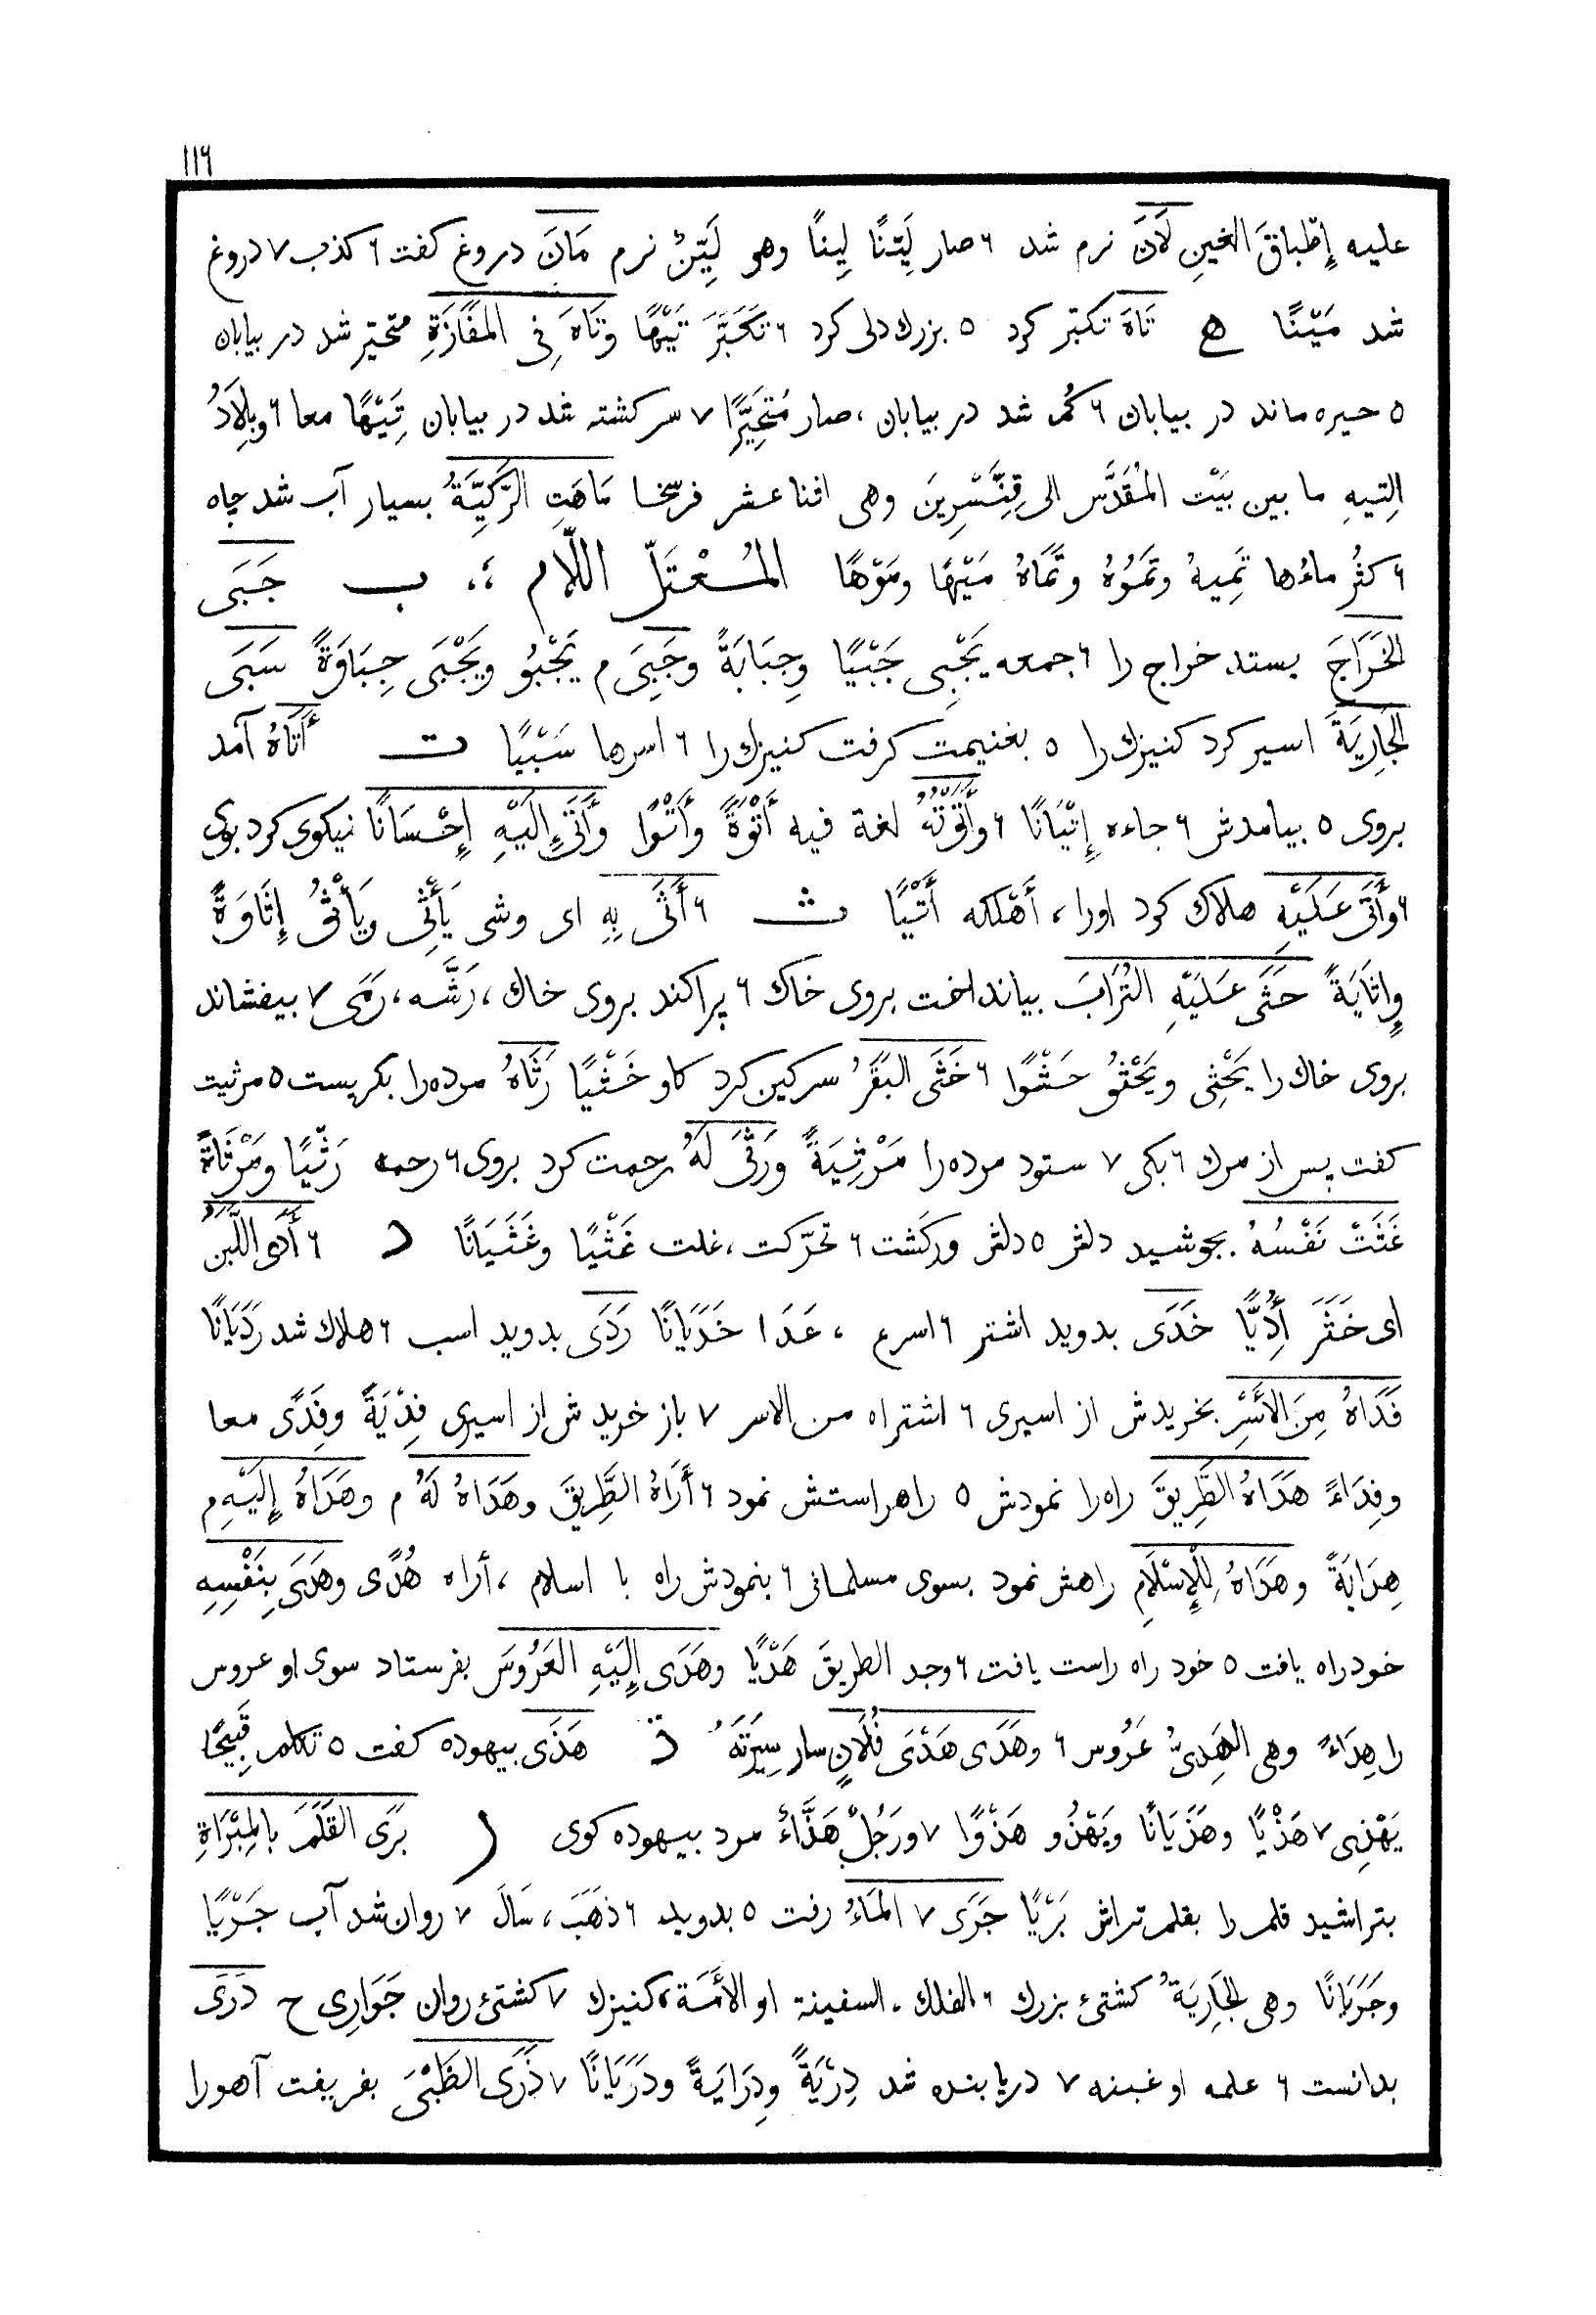 ١١٦
عليه إطْباقَ الغينِ لَانَ نرم شد ٦ صار لَيِّنًا لِينًا وهو لَيِّنٌ نرم مَانَ دروغ كفت ٦ كذب ٧ دروغ
شد مَيْنًا ه تَاهَ تكبّر كرد ٥ بزرك دلى كرد ٦ تَكَبَّرَ تَيْهًا وتَاهَ فِى المَفَازَةِ متحيّر شد در بيابان
٥ حيره ماند در بيابان ٦ كُم شد در بيابان ، صار مُتَحَيِّرًا ٧ سركشته شد در بيابان تَِيْهًا معا ٦ وبِلَادُ
التِيهِ ما بين بَيْت المُقَدَّس الى قِنَّسْرِينَ وهى اثنا عشر فرسخا مَاهَتِ الرَّكِيَّةُ بسيار آب شد چاه
٦ كثُر ماءُها تَمِيهُ وتَمُوُهُ وتَمَاهُ مَيْهًا ومَوْهًا المُعْتَلّ اللّام ،؛ ب جَبَى
الخَرَاجَ بستد خراج را ٦ جمعه يَجْبِى جَبْيًا وجِبَايَةً وجَبِىَ م يَجْبُو ويَجْبَى جِبَاوَةً سَبَى
الجَارِيَةَ اسير كرد كنيزك را ٥ بغنيمت كرفت كنيزك را ٦ اسرها سَبْيًا ت أَتَاهُ آمد
بروى ٥ بيامدش ٦ جاءه إِتْيَانًا ٦ وأَتَوْتُهُ لغة فيه أَتْوَةً وأَتْوًا وأَتَى إِلَيْهِ إِحْسَانًا نيكوى كرد بوى
٦ وأَتَى عَلَيْهِ هلاك كرد اورا ، أَهْلكه أَتْيًا ث ٦ أَثَى بِهِ اى وشى يَأْثِى ويَأْثُو إِثَاوَةً
وإِثَايَةً حَثَى عَلَيْهِ التُّرَابَ بيانداخت بروى خاك ٦ پراكند بروى خاك ، رَشَّه ، رَمَى ٧ بيفشاند
بروى خاك را يَحْثِى ويَحْثُو حَثْوًا ٦ خَثَى البَقَرُ سركين كرد كاو خَثْيًا رَثَاهُ مرده را بكريست ٥ مرثيت
كفت پس از مرك ٦ بكى ٧ ستود مرده را مَرْثِيَةً ورَثَى لَهُ رحمت كرد بروى ٦ رحمه رَثْيًا ومَرْثَاةً
غَثَتْ نَفْسُهُ بجوشيد دلش ٥ دلش وركَشت ٦ تحرّكت ، غلت غَثْيًا وغَثَيَانًا د ٦ أَدَى اللَّبَنُ
اى خَثَرَ أُدِيًّا خَدَى بدويد اشتر ٦ اسرع ، عَدَا خَدَيَانًا رَدَى بدويد اسب ٦ هلاك شد رَدَيَانًا
فَدَاهُ مِنَ الأَسْرِ بخريدش از اسيرى ٦ اشتراه من الاسر ٧ باز خريدش از اسيرى فِدْيَةً وفِدًى معا
وفِدَاءً هَدَاهُ الطَّرِيقَ راه را نمودش ٥ راه راستش نمود ٦ أَرَاهُ الطَّرِيقَ وهَدَاهُ لَهُ م وهَدَاهُ إِلَيْهِ م
هِدَايَةً وهَدَاهُ لِلْإِسْلَامِ راهش نمود بسوى مسلمانى ٦ بنمودش راه با اسلام ، أراه هُدًى وهَدَى بِنَفْسِهِ
خود راه يافت ٥ خود راه راست يافت ٦ وجد الطريقَ هَدْيًا وهَدَى إِلَيْهِ العَرُوسَ بفرستاد سوى او عروس
را هِدَاءً وهى الهَدِىُّ عَرُوس ٦ وهَدَى هَدْىَ فُلَانٍ سار سِيرَتَهُ ذ هَذَى بيهوده كفت ٥ تكلم قَبِيحًا
يَهْذِى ٧ هَذْيًا وهَذَيَانًا ويَهْذُو هَذْوًا ٧ ورَجُلٌ هَذَّاءٌ مرد بيهوده كوى ر بَرَى القَلَمَ بالمِبْرَاةِ
بتراشيد قلم را بقلم تراش بَرْيًا جَرَى ٧ المَاءُ رفت ٥ بدويد ٦ ذهَبَ ، سَالَ ٧ روان شد آب جَرْيًا
وجَرَيَانًا وهى الجَارِيَةُ كشتئ بزرك ٦ الفلك ، السفينة او الأَمَة ، كنيزك ٧ كشتئ روان جَوَارِى ح دَرَى
بدانست ٦ علمه او غبنه ٧ دريابنده شد دِرْيَةً ودِرَايَةً ودَرَيَانًا ٧ دَرَى الظَبْىَ بفريفت آهورا